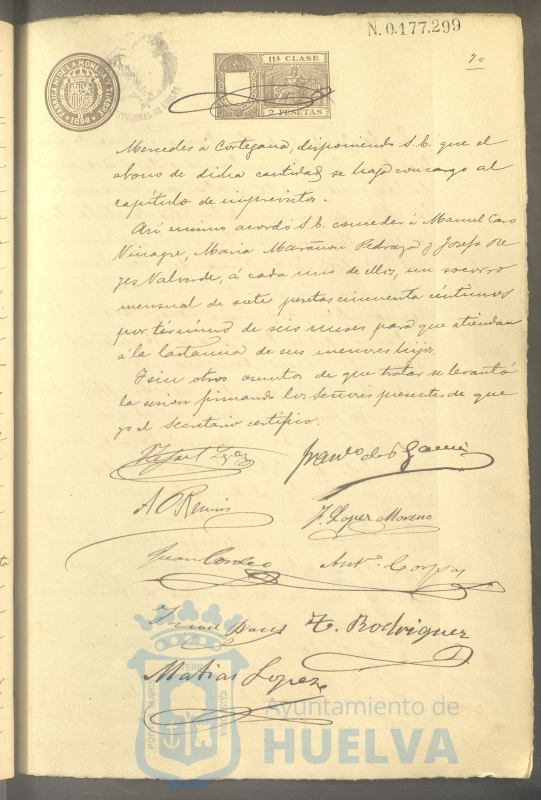 N. 0.177.299
FABRICA N. DE LA MONEDA Y TIMBRE
1896
11ª CLASE
2 PESETAS
Mercedes á Cortegana, disponiendo S.E. que el
abono de dicha cantidad se haga con cargo al
capítulo de imprevistos.
Asi mismo acordó S.E. conceder á Manuel Caro
Vinagre, Maria Marañon Pedraza y Josefa Re-
yes Valverde, á cada uno de ellos, un socorro
mensual de siete pesetas cincuenta céntimos
por término de seis meses para que atiendan
á la lactancia de sus menores hijos.
Y sin otros asuntos de que tratar se levantó
la sesion firmando los Señores presentes de que
yo el Secretario certifico.
Rafael Lopez
Garcia
J. Lopez Moreno
Juan Cordero
Antº
T. Rodriguez
Matias Lopez
Ayuntamiento de
HUELVA